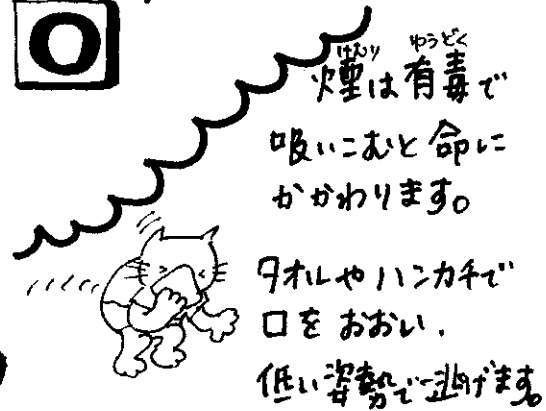 O
煙は有毒で
吸いこむと命に
かかわります。
タオルやハンカチで
口をおおい、
低い姿勢で逃げます。